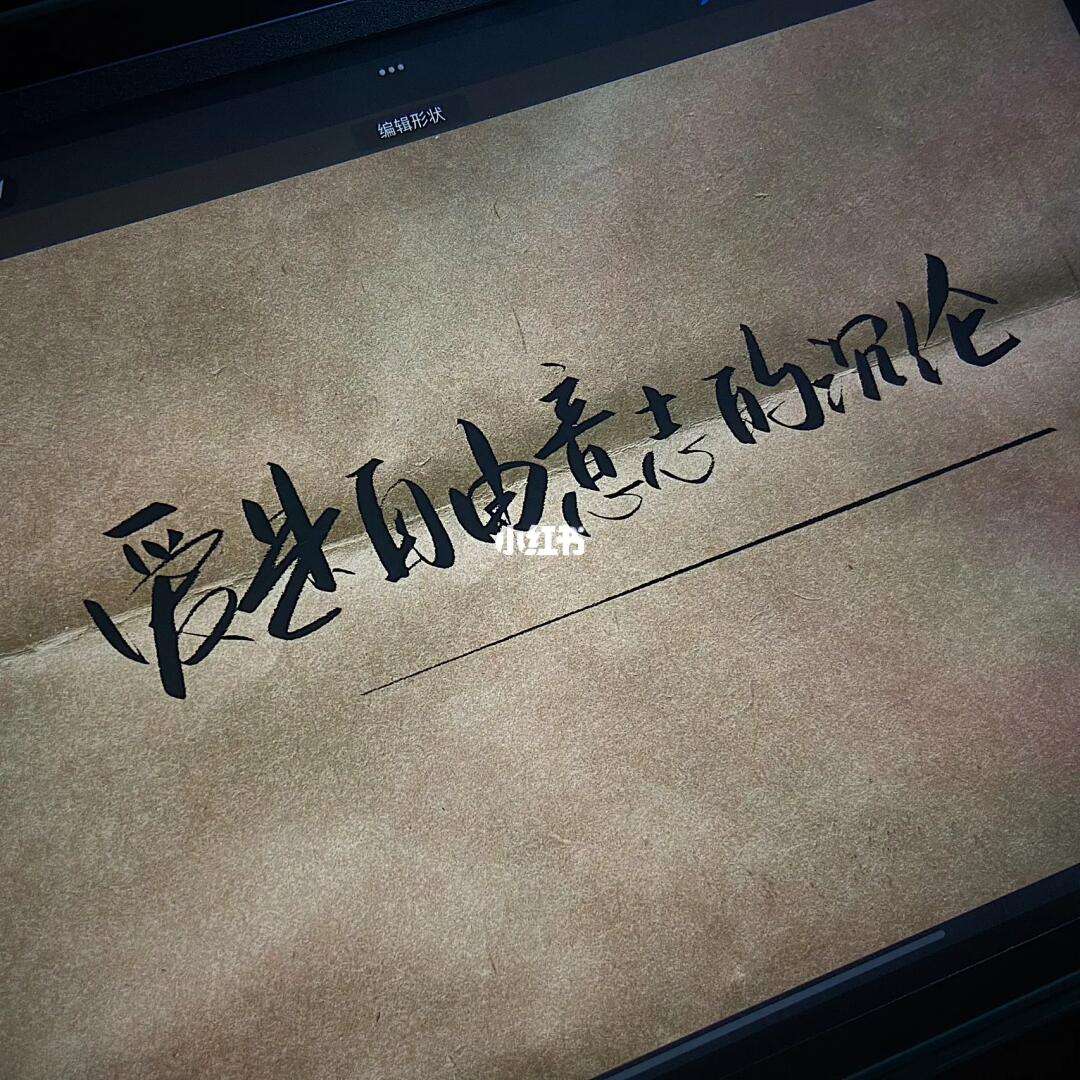 编辑形状
爱是自由意志的沉伦
小红书